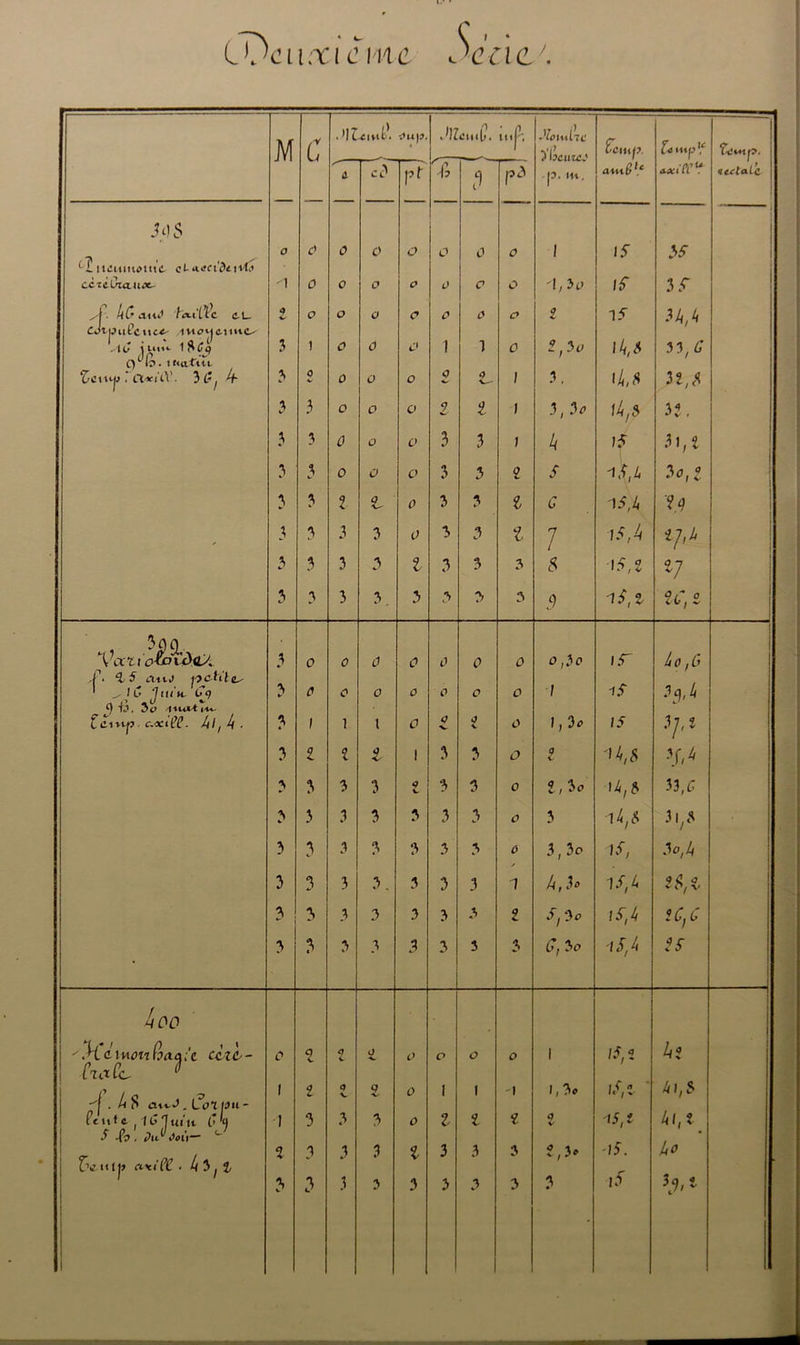 Deuxième Série.
M C Memb. sup. Memb. inf. Nombre d'heures p. m. Temp. ambte Tempre axillre Temp. rectale
a cd pt h g pd
398
Pneumonie et accidents
cérébraux
f. 46 ans taille et
corpulence moyenne
16 juin 1869
9 h. matin
Temp. axill. 36,4
0 0 0 0 0 0 0 0 1 15 35
1 0 0 0 0 0 0 0 1,30 15 35
2 0 0 0 0 0 0 0 2 15 34,4
3 1 0 0 0 1 1 0 2,30 14,8 33,6
3 2 0 0 0 2 2 1 3. 14,8 32,8
3 3 0 0 0 2 2 1 3,30 14,8 32.
3 3 0 0 0 3 3 1 4 15 31,2
3 3 0 0 0 3 3 2 5 15,4 30,2
3 3 2 2 0 3 3 2 6 15,4 29
3 3 3 3 0 3 3 2 7 15,4 27,4
3 3 3 3 2 3 3 3 8 15,2 27
3 3 3 3. 3 3 3 3 9 15,2 26,2
399
Varioloïde
f. 25 ans petite
16 Juin 69
9 h. 30 matin
Temp. axill. 41,4.
3 0 0 0 0 0 0 0 0,30 15 40,6
3 0 0 0 0 0 0 0 1 15 39,4
3 1 1 1 0 2 2 0 1,30 15 37,2
3 2 2 2 1 3 3 0 2 14,8 35,4
3 3 3 3 2 3 3 0 2,30 14,8 33,6
3 3 3 3 3 3 3 0 3 14,8 31,8
3 3 3 3 3 3 3 0 3,30 15, 30,4
3 3 3 3. 3 3 3 1 4,30 15,4 28,2
3 3 3 3 3 3 3 2 5,30 15,4 26,6
3 3 3 3 3 3 3 3 6,30 15,4 25
400
Hémorrhagie céré-
brale
f. 48 ans. Corpu-
lente, 16 Juin 69
5 h. du soir
Temp axill. 43,2
0 2 2 2 0 0 0 0 1 15,2 42
1 2 2 2 0 1 1 1 1,30 15,2 41,8
1 3 3 3 0 2 2 2 2 15,2 41,2
2 3 3 3 2 3 3 3 2,30 15. 40
3 3 3 3 3 3 3 3 3 15 39,2